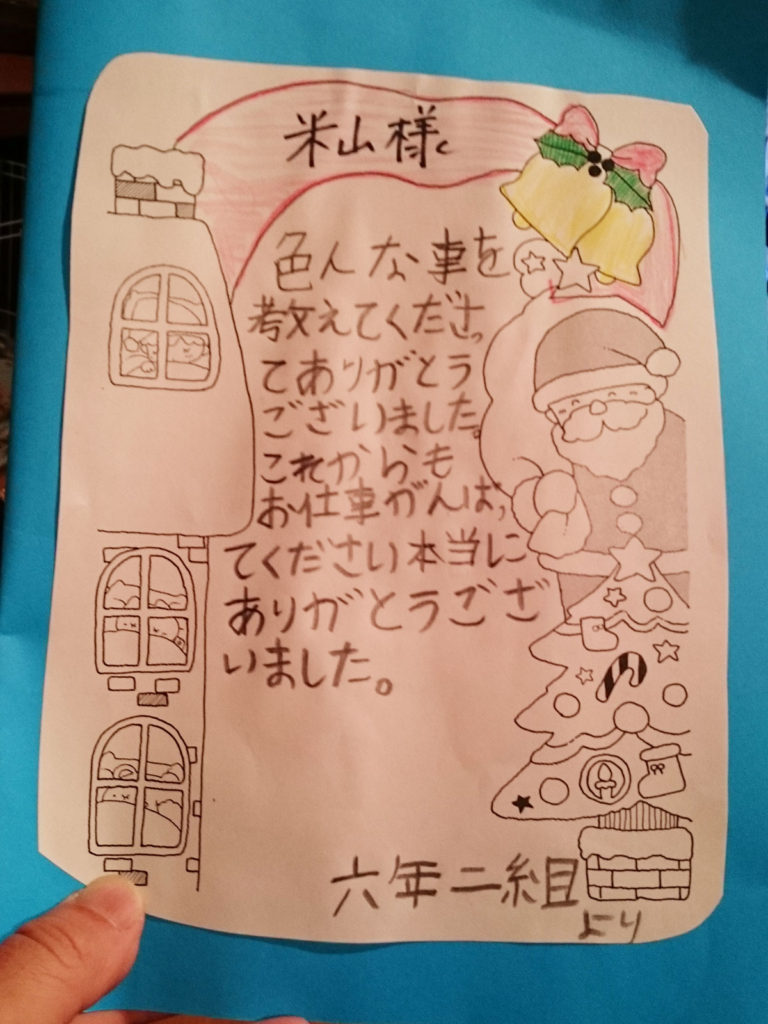 米山様
色んな事を
教えてくださっ
てありがとう
ございました。
これからも
お仕事がんばっ
てください本当に
ありがとうござ
いました。
六年二組
より